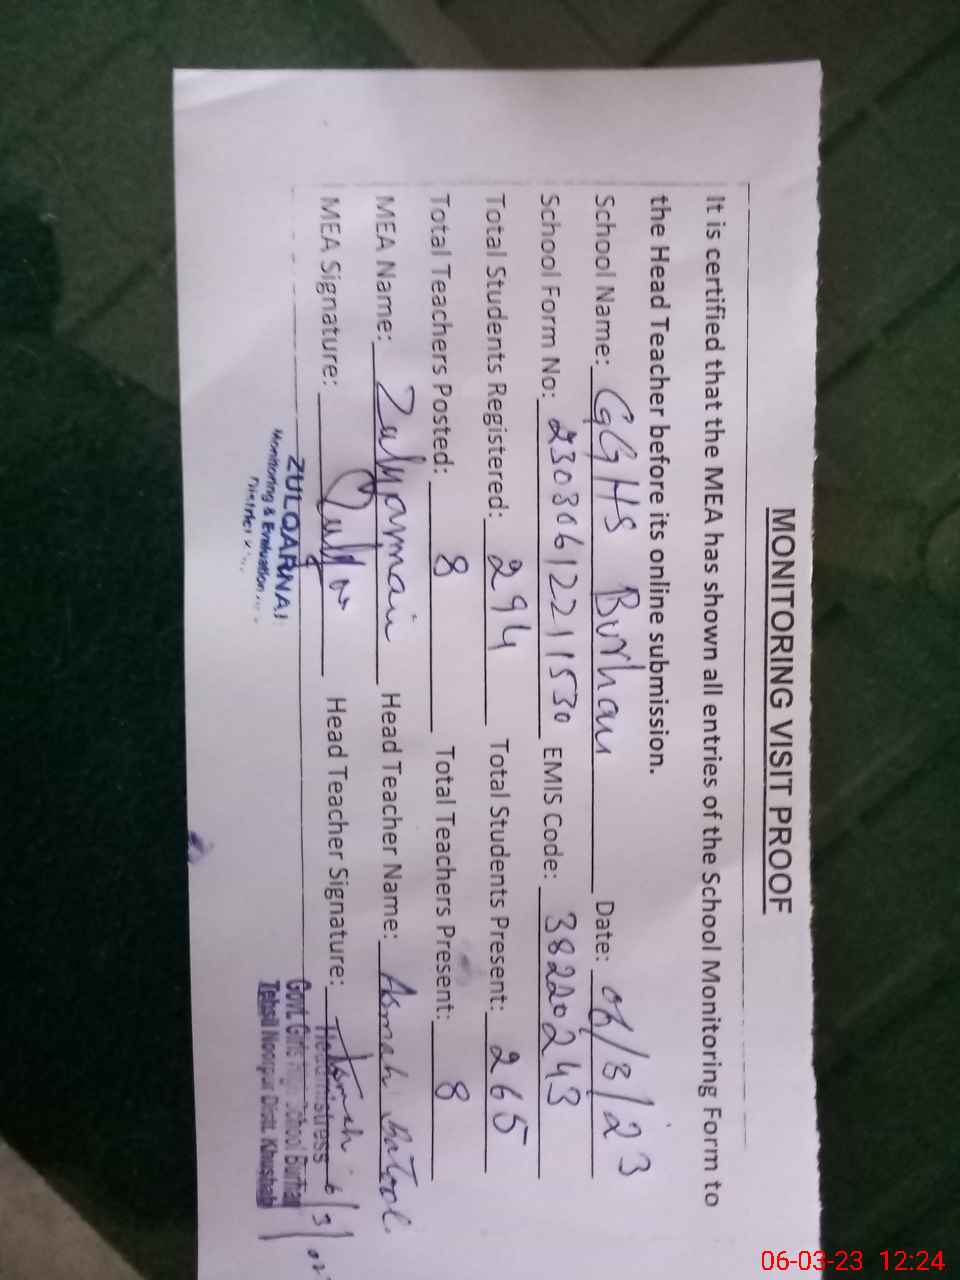 MONITORING VISIT PROOF
It is certified that the MEA has shown all entries of the School Monitoring Form to
the Head Teacher before its online submission.
School Name: GGHS Burhan Date: 06/3/23
School Form No: 23030612211530 EMIS Code: 38220243
Total Students Registered: 294 Total Students Present: 265
Total Teachers Posted: 8 Total Teachers Present: 8
MEA Name: Zulqarnain Head Teacher Name: Asmah Batool
MEA Signature: Head Teacher Signature: Asmah 6/3/
Headmistress
ZULQARNAI
Govt. Girls High School Burhan
Monitoring & Evaluation
Tehsil Noorpur Distt. Khushab
District
06-03-23 12:24